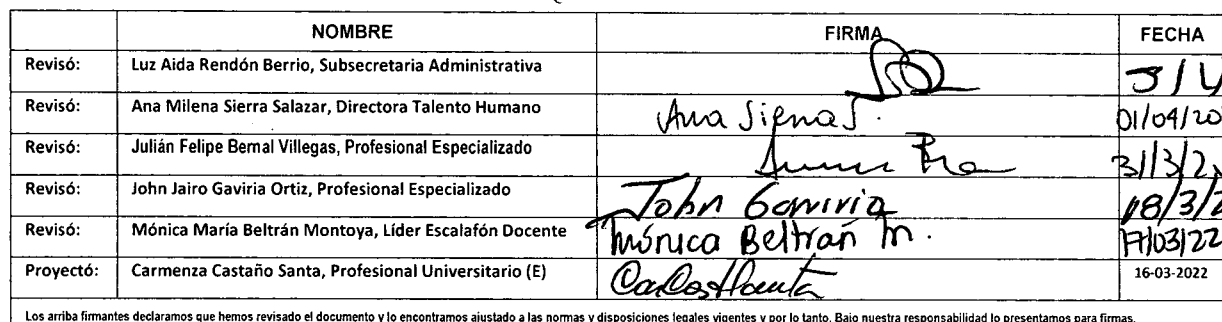 NOMBRE FIRMA FECHA
Revisó: Luz Aida Rendón Berrio, Subsecretaria Administrativa 5/4
Revisó: Ana Milena Sierra Salazar, Directora Talento Humano Ana Sierra S. 01/04/20
Revisó: Julián Felipe Bernal Villegas, Profesional Especializado 31/3/2
Revisó: John Jairo Gaviria Ortiz, Profesional Especializado John Gaviria 18/3/2
Revisó: Mónica María Beltrán Montoya, Líder Escalafón Docente Mónica Beltrán m. 17/03/22
Proyectó: Carmenza Castaño Santa, Profesional Universitario (E) 16-03-2022
Los arriba firmantes declaramos que hemos revisado el documento y lo encontramos ajustado a las normas y disposiciones legales vigentes y por lo tanto. Bajo nuestra responsabilidad lo presentamos para firmas.